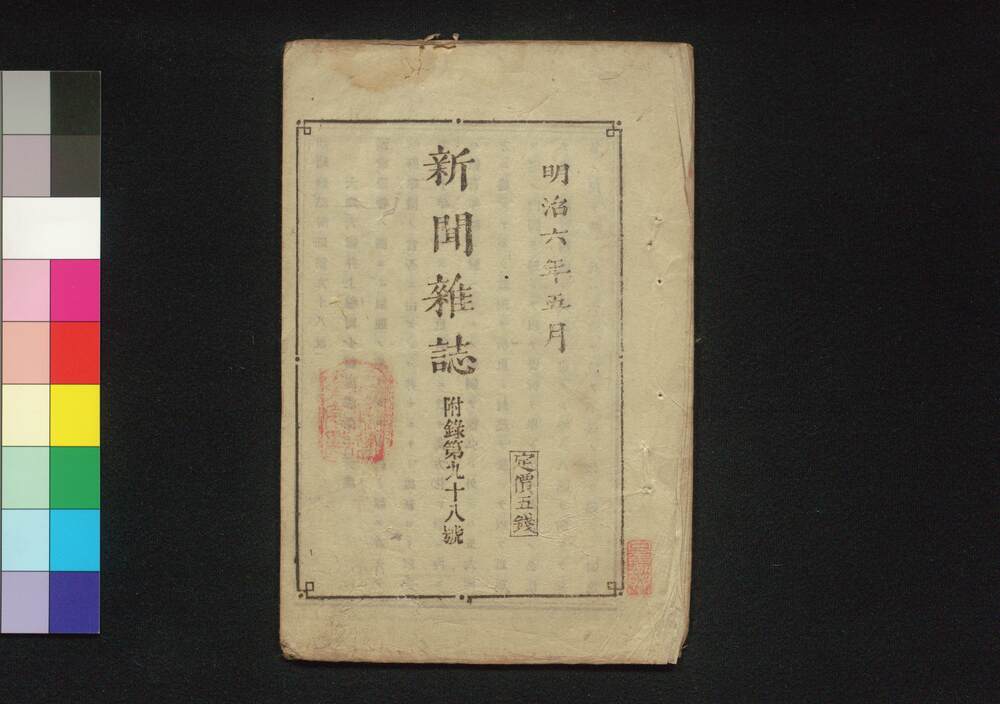 明治六年五月
定價五錢
新聞雜誌 附錄第九十八號